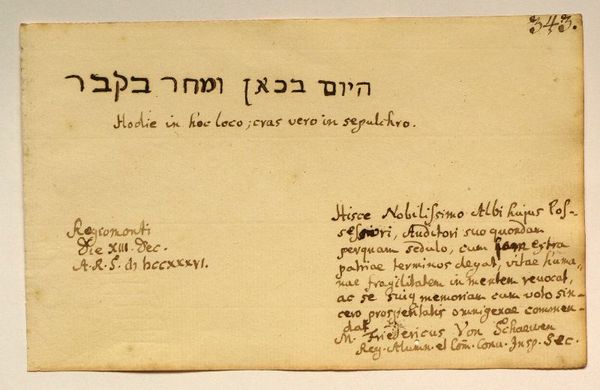 343.
היום בכאן ומחר בקבר
Hodie in hoc loco; cras vero in sepulchro.
Regiomonti
Die XIII. Dec.
A. R. S. MDCCXXXVI.
Hisce Nobilissimo Albi hujus Pos-
sessori, Auditori suo quondam
perquam sedulo, cum extra
patriae terminos degat, vitae huma-
nae fragilitatem in mentem revocat,
ac se suiq memoriam cum voto sin-
cero prosperitatis omnigenae commen-
dat
M. Fridericus Von Schaewen
Reg. Alumn. et Com. Conv. Insp. Sec.